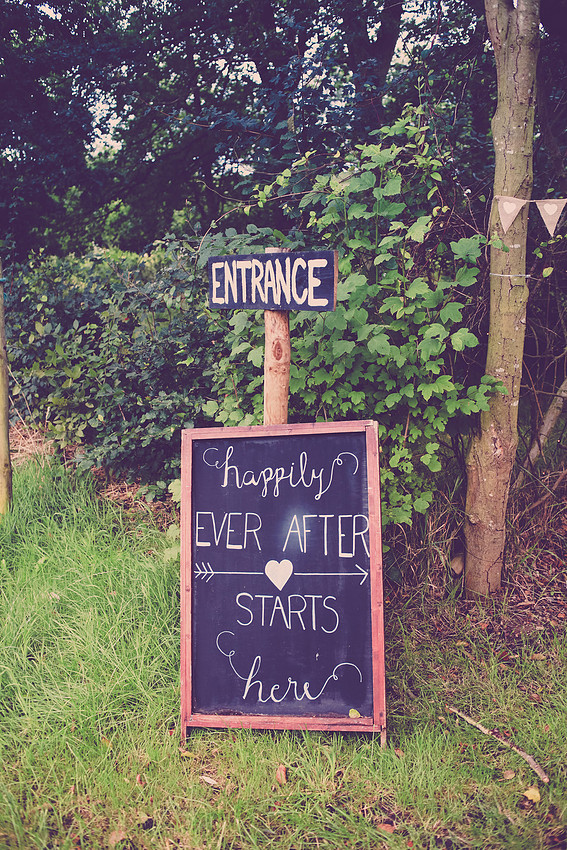 ENTRANCE
happily
EVER AFTER
STARTS
here